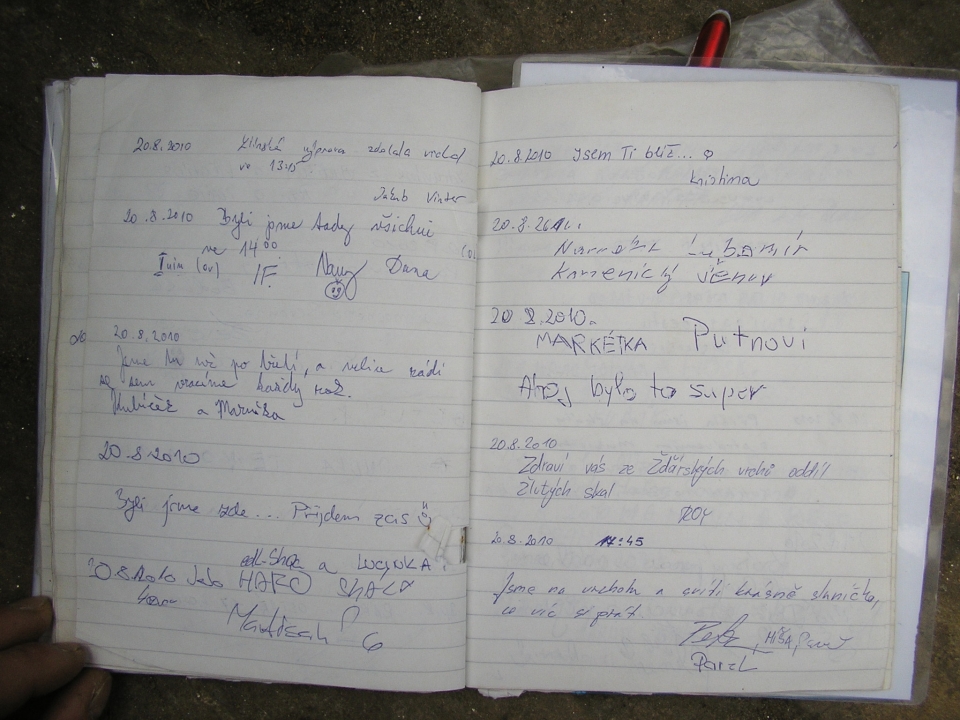 20.8.2010 Zlínská výprava zdolala vrchol
ve 13:15
Jakub Vinter
20.8.2010 Byli jsme tady všichni
ve 14 00
IF. Dana
20.8.2010
Jsme tu už po třetí, a velice rádi
se sem vracíme každý rok.
Kubíček a Maruška
20.8.2010
Byli jsme zde... Přijdem zas
a LUCINKA
HARO
20.8.2010 Jsem Ti blíž...
Kristina
20.8.
Kamenický
20 8.2010.
MARKÉTKA Putnovi
Ahoj bylo to super
20.8.2010
Zdraví vás ze Žďárských vrchů oddíl
Žlutých skal
ROY
20.8.2010 17:45
Jsme na vrcholu a svítí krásně sluníčko,
co víc si přát.
Petr, MÍŠA,
Pavel